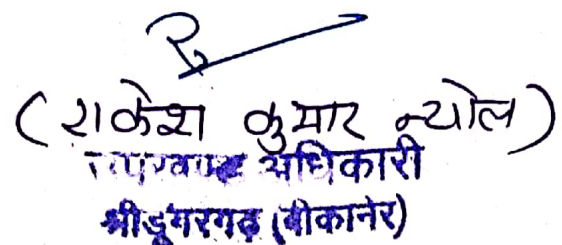 (राकेश कुमार न्योल)
उपखण्ड अधिकारी
श्रीडूंगरगढ़ (बीकानेर)